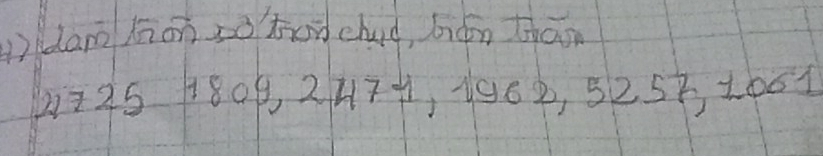 4) Làm tròn số tròn chục, trăm
2725 1809, 2471, 1962, 5257, 1061